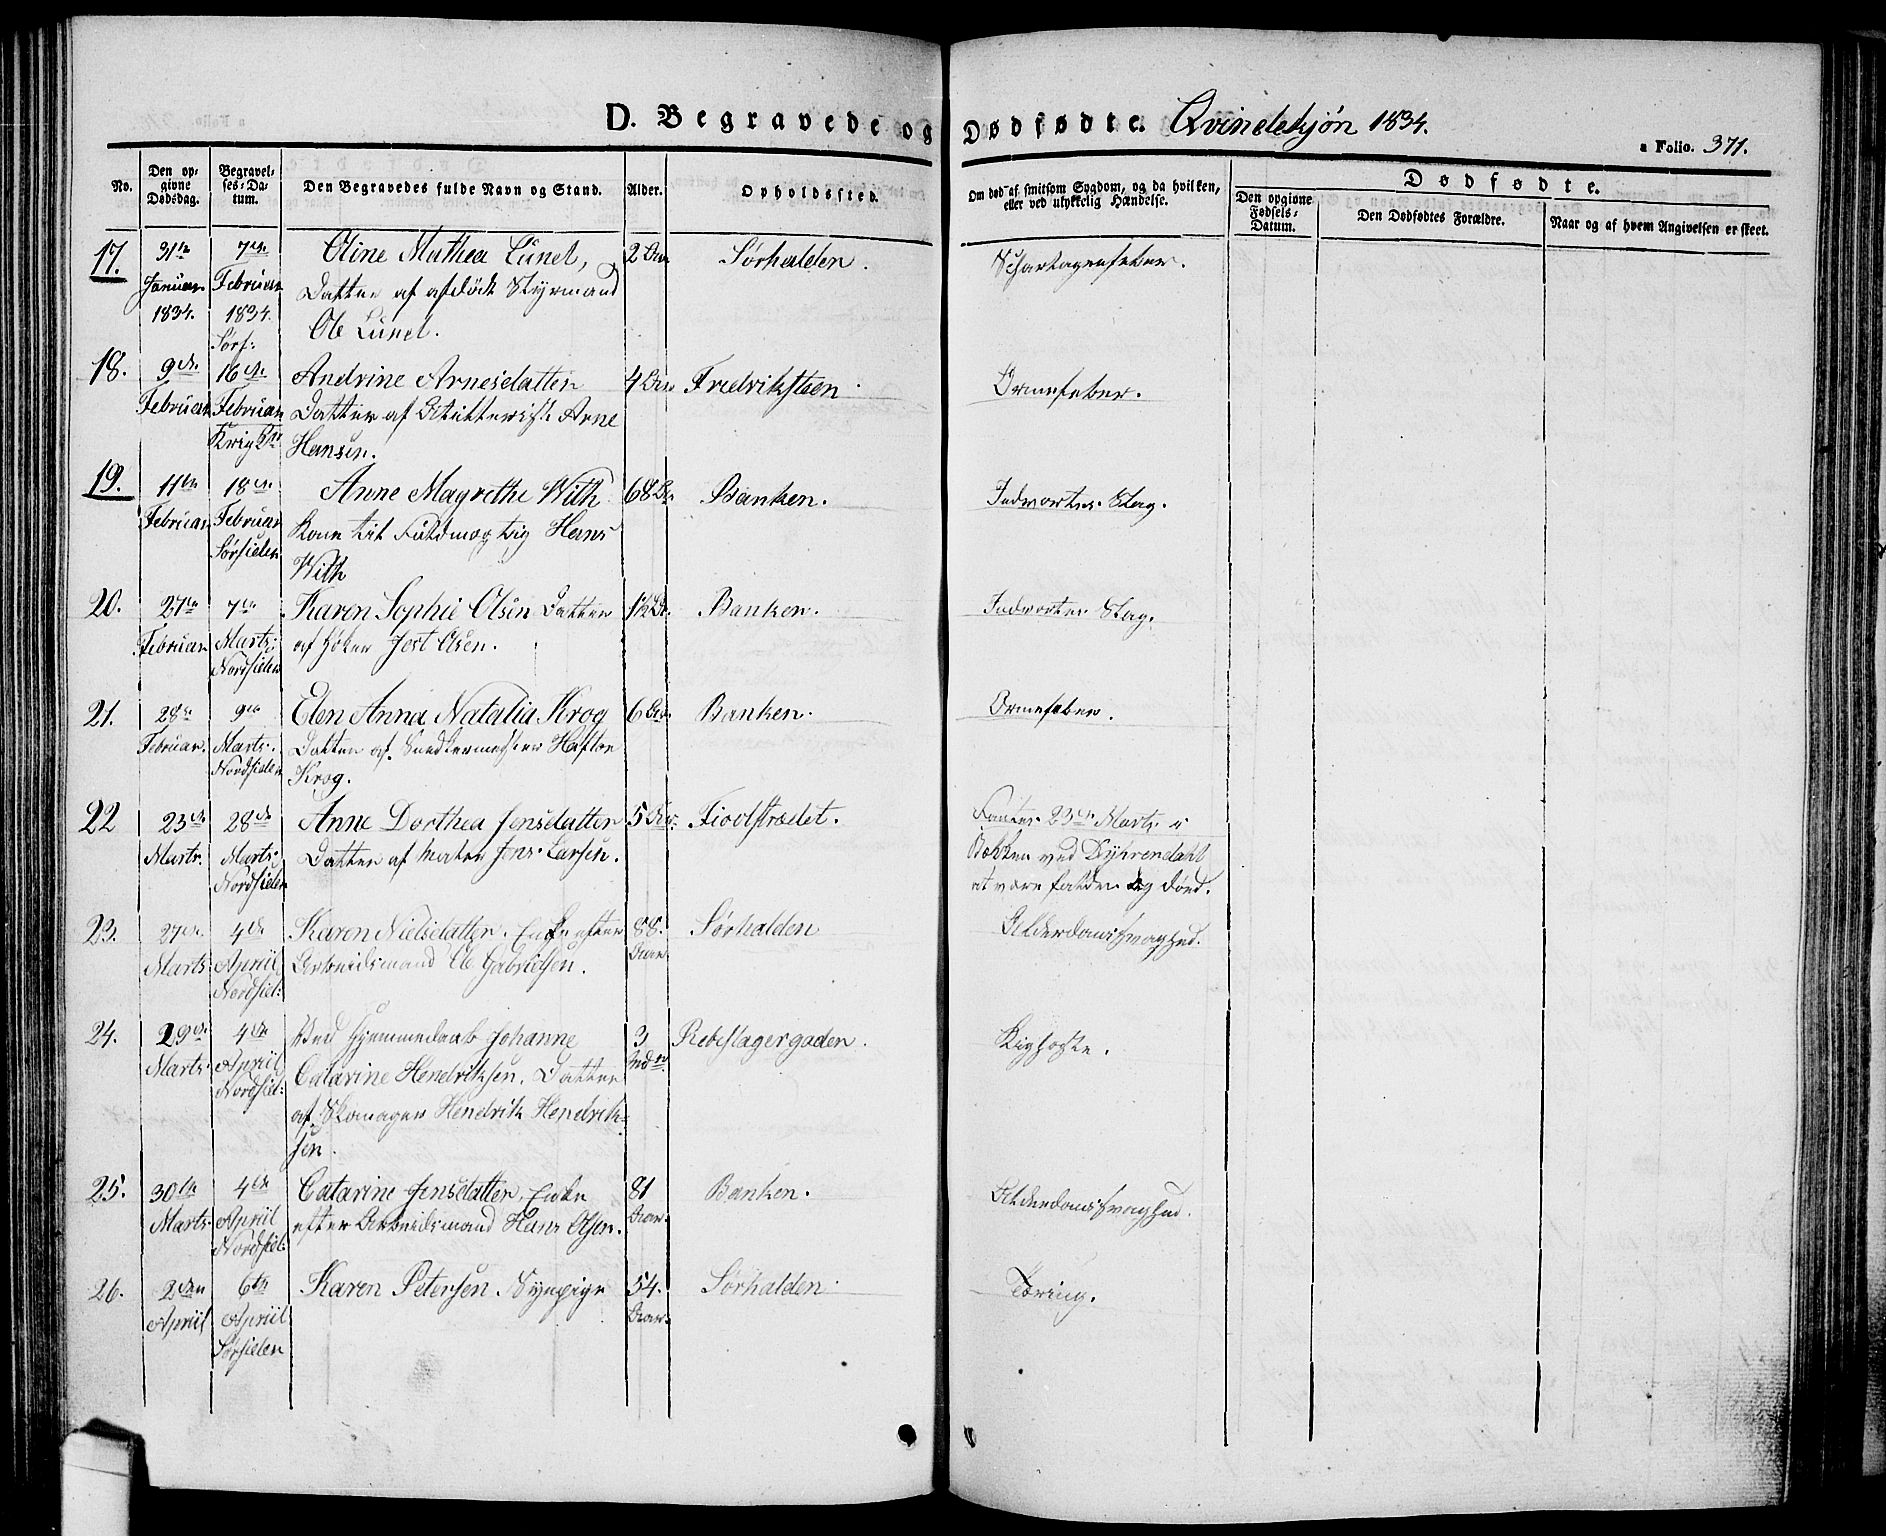 D. Begravede og Dødfødte. Qvindekjøn 1834.
a Folio. 371.
No.
Den opgivne Dødsdag.
Begravelses-Datum.
Den Begravedes fulde Navn og Stand.
Alder.
Opholdssted.
Om død af smitsom Sygdom, og da hvilken,
eller ved ulykkelig Hændelse.
Dødfødte.
Den opgivne Fødsels-Datum.
Den Dødfødtes Forældre.
Naar og af hvem Angivelsen er skeet.
17. 31te 7de Oline Mathea Lund, 2 Aar Sørhalden. Scharlagensfeber.
Januar Februar Datter af afdöde Styrmand
1834. 1834. Ole Lund.
Sörs:
18. 9de 16de Andrine Arnesdatter 4 Aar Fredriksteen. Ormefeber.
Februar Februar Datter af Arne
Hansen.
19. 11te 18de Anne Magrethe With 68 Aar Banken. Indvortes Slag.
Februar Februar Kone til Fuldmægtig Hans
Sörsiden With
20. 27de 7de Karen Sophie Olsen Datter Banken. Indvortes Slag.
Februar Marts. af Høker Jost Olsen.
Nordsiden
21. 28de 9de Elen Anna Natalia Krog 6 Aar. Banken. Ormefeber.
Februar. Marts. Datter af Snedkermester Haftor
Nordsiden Krog.
22 23de 28de Anne Dorthea Jensdatter 5 Aar. Fiolstrædet. Fantes 23de Marts i
Marts. Marts. Datter af Mater Jens Larsen. Bækken ved Dyhrendahl
Nordsiden at være falden og död.
23. 27de 4de Karen Nielsdatter. Enke efter 88. Sørhalden Alderdomssvaghed.
Marts April Arbeidsmand Ole Gabrielsen. Aar
Nordsid:
24. 29de 4de Ved Hjemmedaab Johanne 3 Rebslagergaden. Kighoste.
Marts. April Catarine Hendriksen. Datter
Nordsid: af Skomager Hendrik Hendrik=
sen.
25. 30te 4de Catarine Jensdatter, Enke 81 Banken. Alderdomssvaghed.
Marts April efter Arbeidsmand Hans Olsen. Aar.
Nordsid:
26. 2den 6te Karen Petersen. Sypige 54. Sørhalden. Tæring.
April April Aar.
Sörsiden